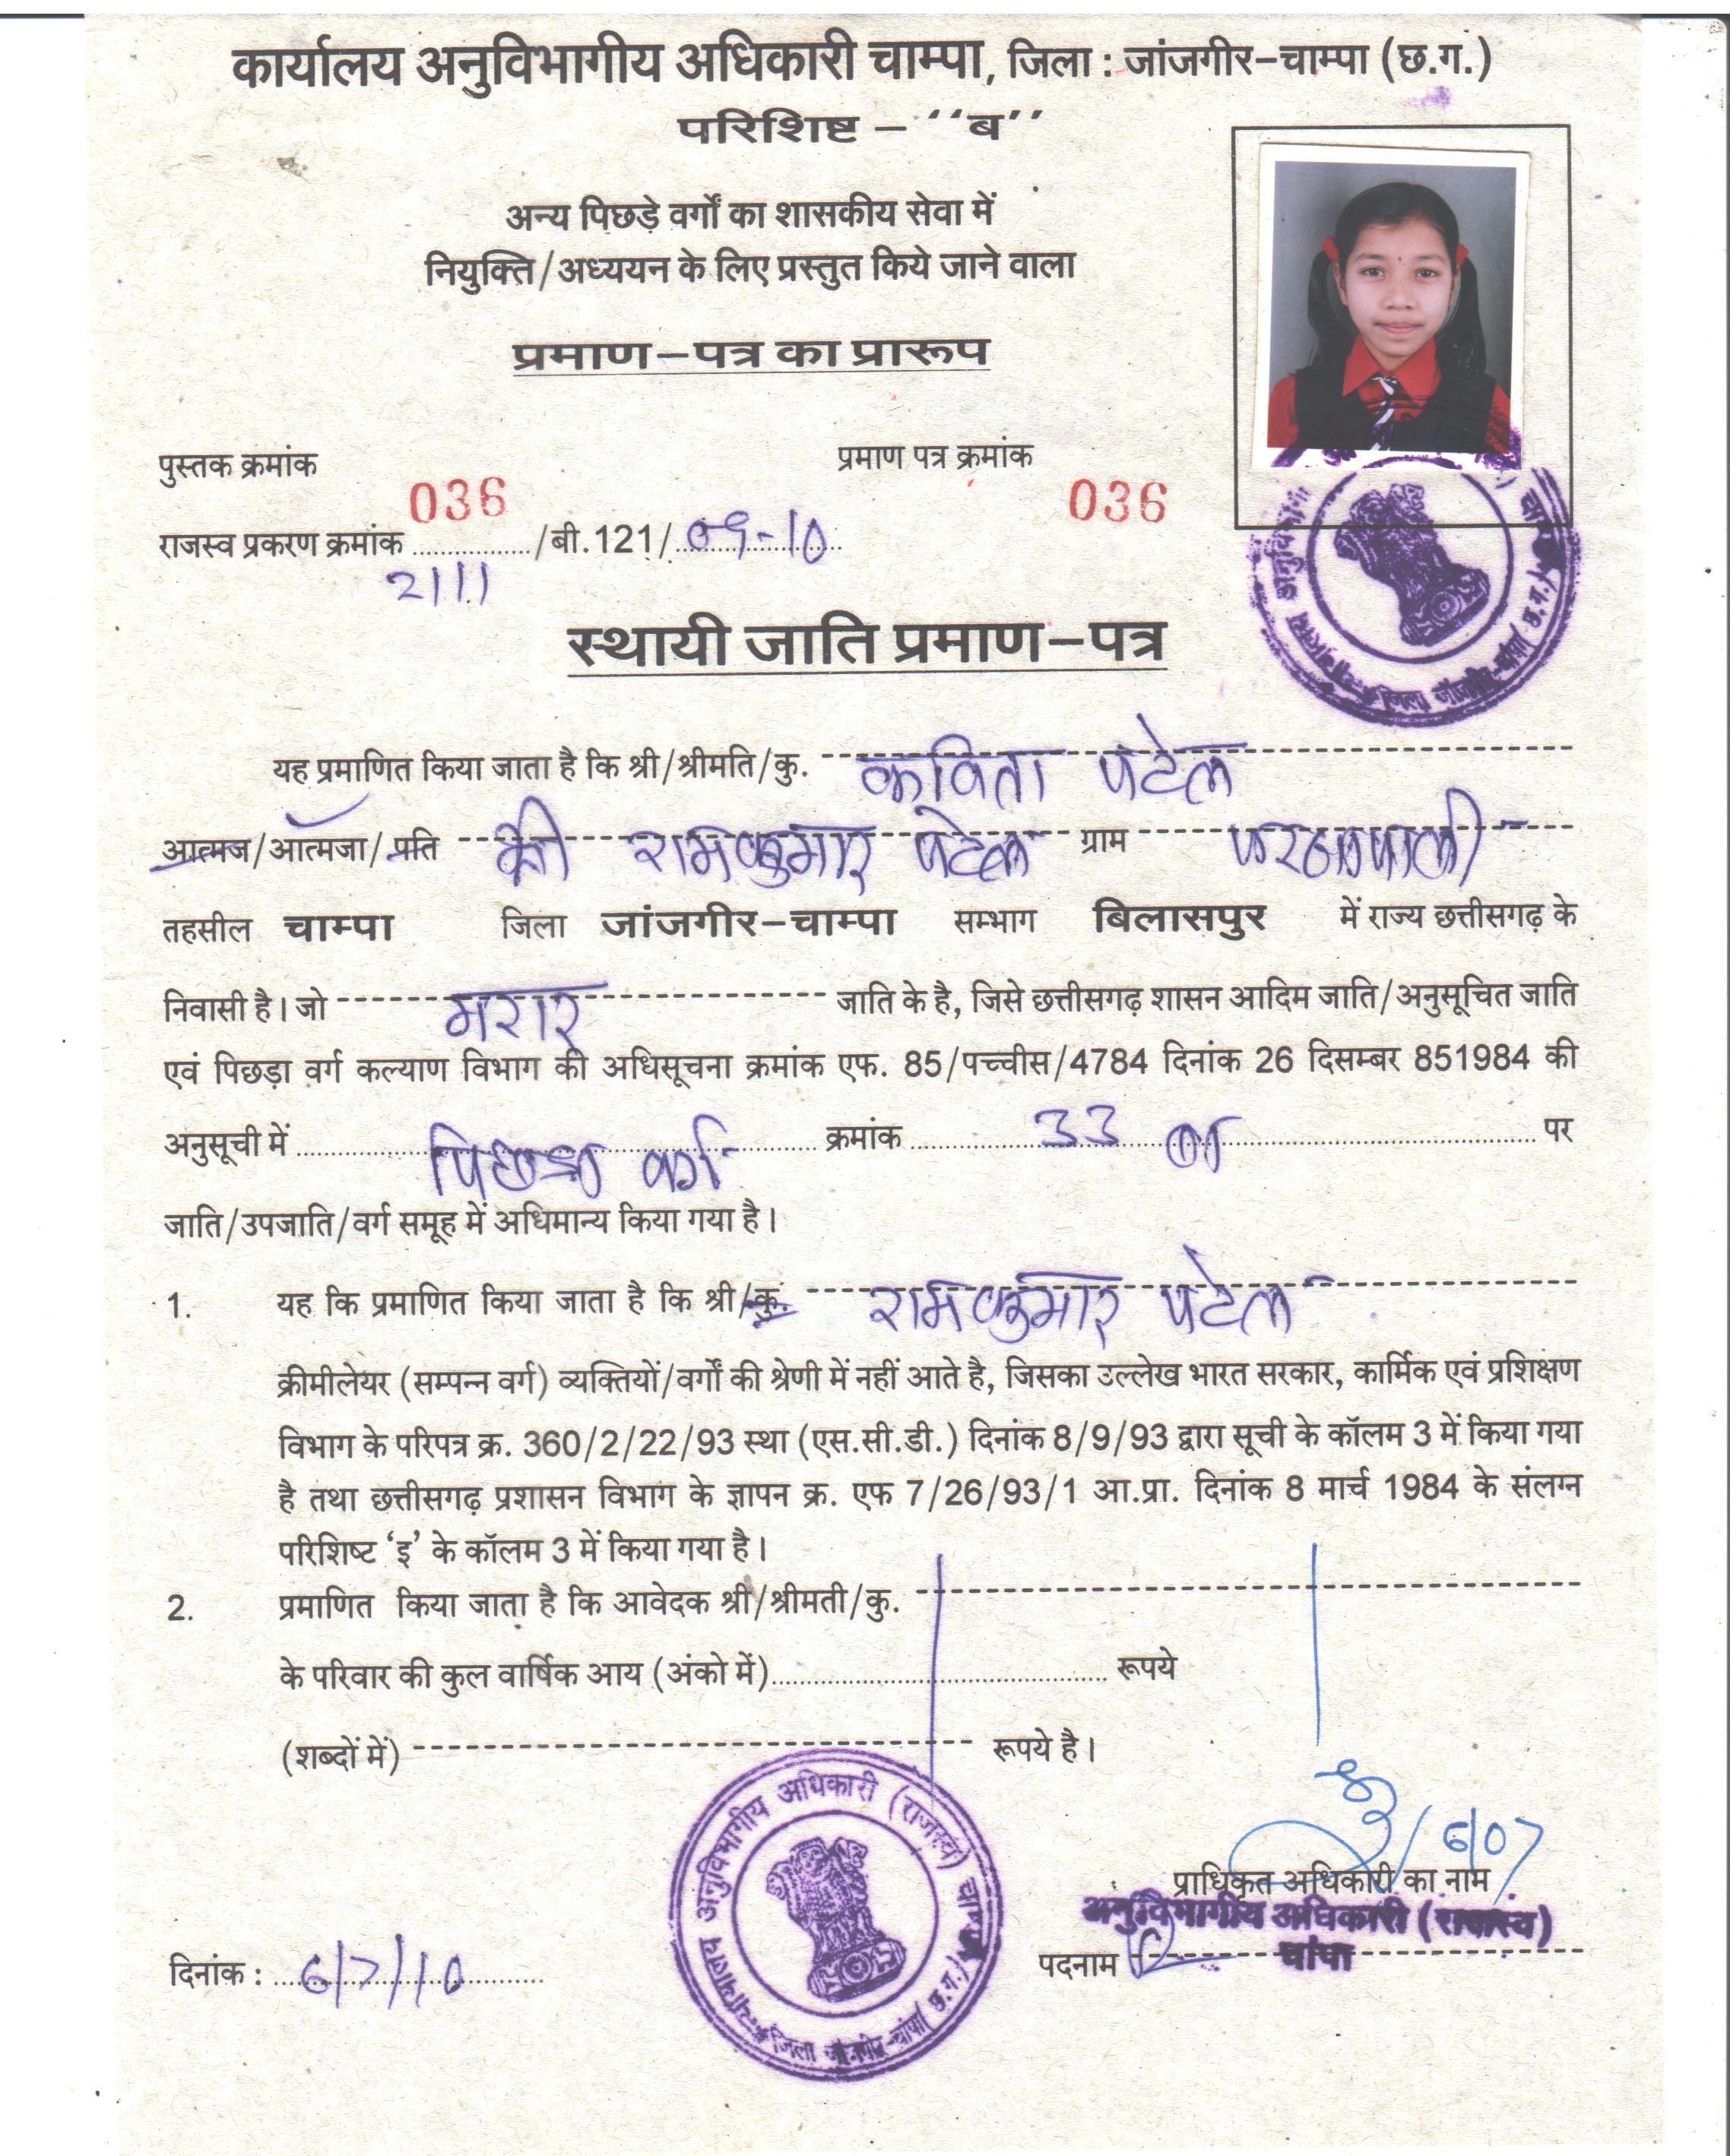 कार्यालय अनुविभागीय अधिकारी चाम्पा, जिला : जांजगीर-चाम्पा (छ.ग.)
परिशिष्ट - ‘‘ब’’
अन्य पिछड़े वर्गों का शासकीय सेवा में
नियुक्ति/अध्ययन के लिए प्रस्तुत किये जाने वाला
प्रमाण-पत्र का प्रारूप
पुस्तक क्रमांक 036 प्रमाण पत्र क्रमांक 036
राजस्व प्रकरण क्रमांक 2111 /बी.121/ 09-10
स्थायी जाति प्रमाण-पत्र
यह प्रमाणित किया जाता है कि श्री/श्रीमति/कु. कविता पटेल
आत्मज/आत्मजा/पति श्री रामकुमार पटेल ग्राम
तहसील चाम्पा जिला जांजगीर-चाम्पा सम्भाग बिलासपुर में राज्य छत्तीसगढ़ के
निवासी है। जो मरार जाति के है, जिसे छत्तीसगढ़ शासन आदिम जाति/अनुसूचित जाति
एवं पिछड़ा वर्ग कल्याण विभाग की अधिसूचना क्रमांक एफ. 85/पच्चीस/4784 दिनांक 26 दिसम्बर 851984 की
अनुसूची में पिछड़ा वर्ग क्रमांक 33 पर
जाति/उपजाति/वर्ग समूह में अधिमान्य किया गया है।
1. यह कि प्रमाणित किया जाता है कि श्री/कु. रामकुमार पटेल
क्रीमीलेयर (सम्पन्न वर्ग) व्यक्तियों/वर्गों की श्रेणी में नहीं आते है, जिसका उल्लेख भारत सरकार, कार्मिक एवं प्रशिक्षण
विभाग के परिपत्र क्र. 360/2/22/93 स्था (एस.सी.डी.) दिनांक 8/9/93 द्वारा सूची के कॉलम 3 में किया गया
है तथा छत्तीसगढ़ प्रशासन विभाग के ज्ञापन क्र. एफ 7/26/93/1 आ.प्रा. दिनांक 8 मार्च 1984 के संलग्न
परिशिष्ट ‘इ’ के कॉलम 3 में किया गया है।
2. प्रमाणित किया जाता है कि आवेदक श्री/श्रीमती/कु.
के परिवार की कुल वार्षिक आय (अंको में) रूपये
(शब्दों में) रूपये है।
न्यायालय अनुविभागीय अधिकारी (राजस्व) चाम्पा
जिला जांजगीर-चांपा (छ.ग.)
6/07
प्राधिकृत अधिकारी का नाम
अनुविभागीय अधिकारी (राजस्व)
चांपा
पदनाम
दिनांक : 6/7/10